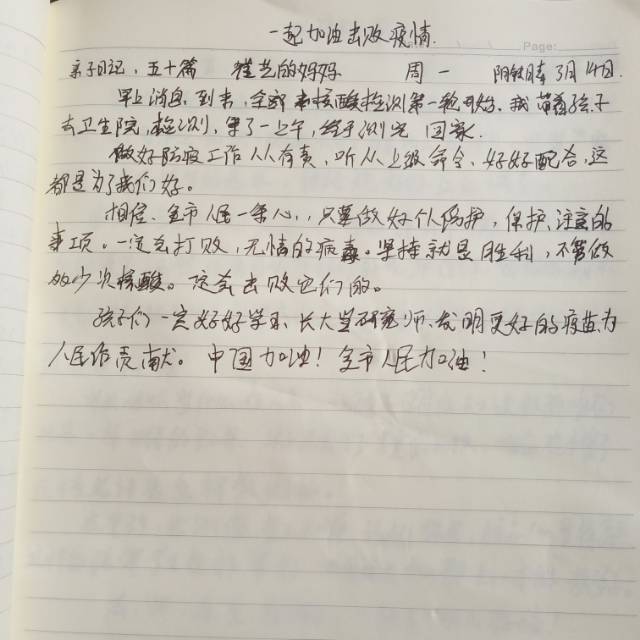 一起加油击败疫情.
Page:
亲子日记,五十篇 崔艺的妈妈 周一 阴转晴 3月14日.
早上消息,到来,全部来核酸检测第一轮开始.我带着孩子
去卫生院,检测,等了一上午,终于测完 回家.
做好防疫工作人人有责,听从上级命令、好好配合,这
都是为了我们好。
相信、全市人民一条心,,只要做好个人防护,保护、注意的
事项。一定会打败,无情的病毒。坚持就是胜利,不管做
多少次核酸。这会击败它们的。
孩子们一定好好学习、长大当研究师、发明更好的疫苗,为
人民作贡献。中国加油!全市人民加油!